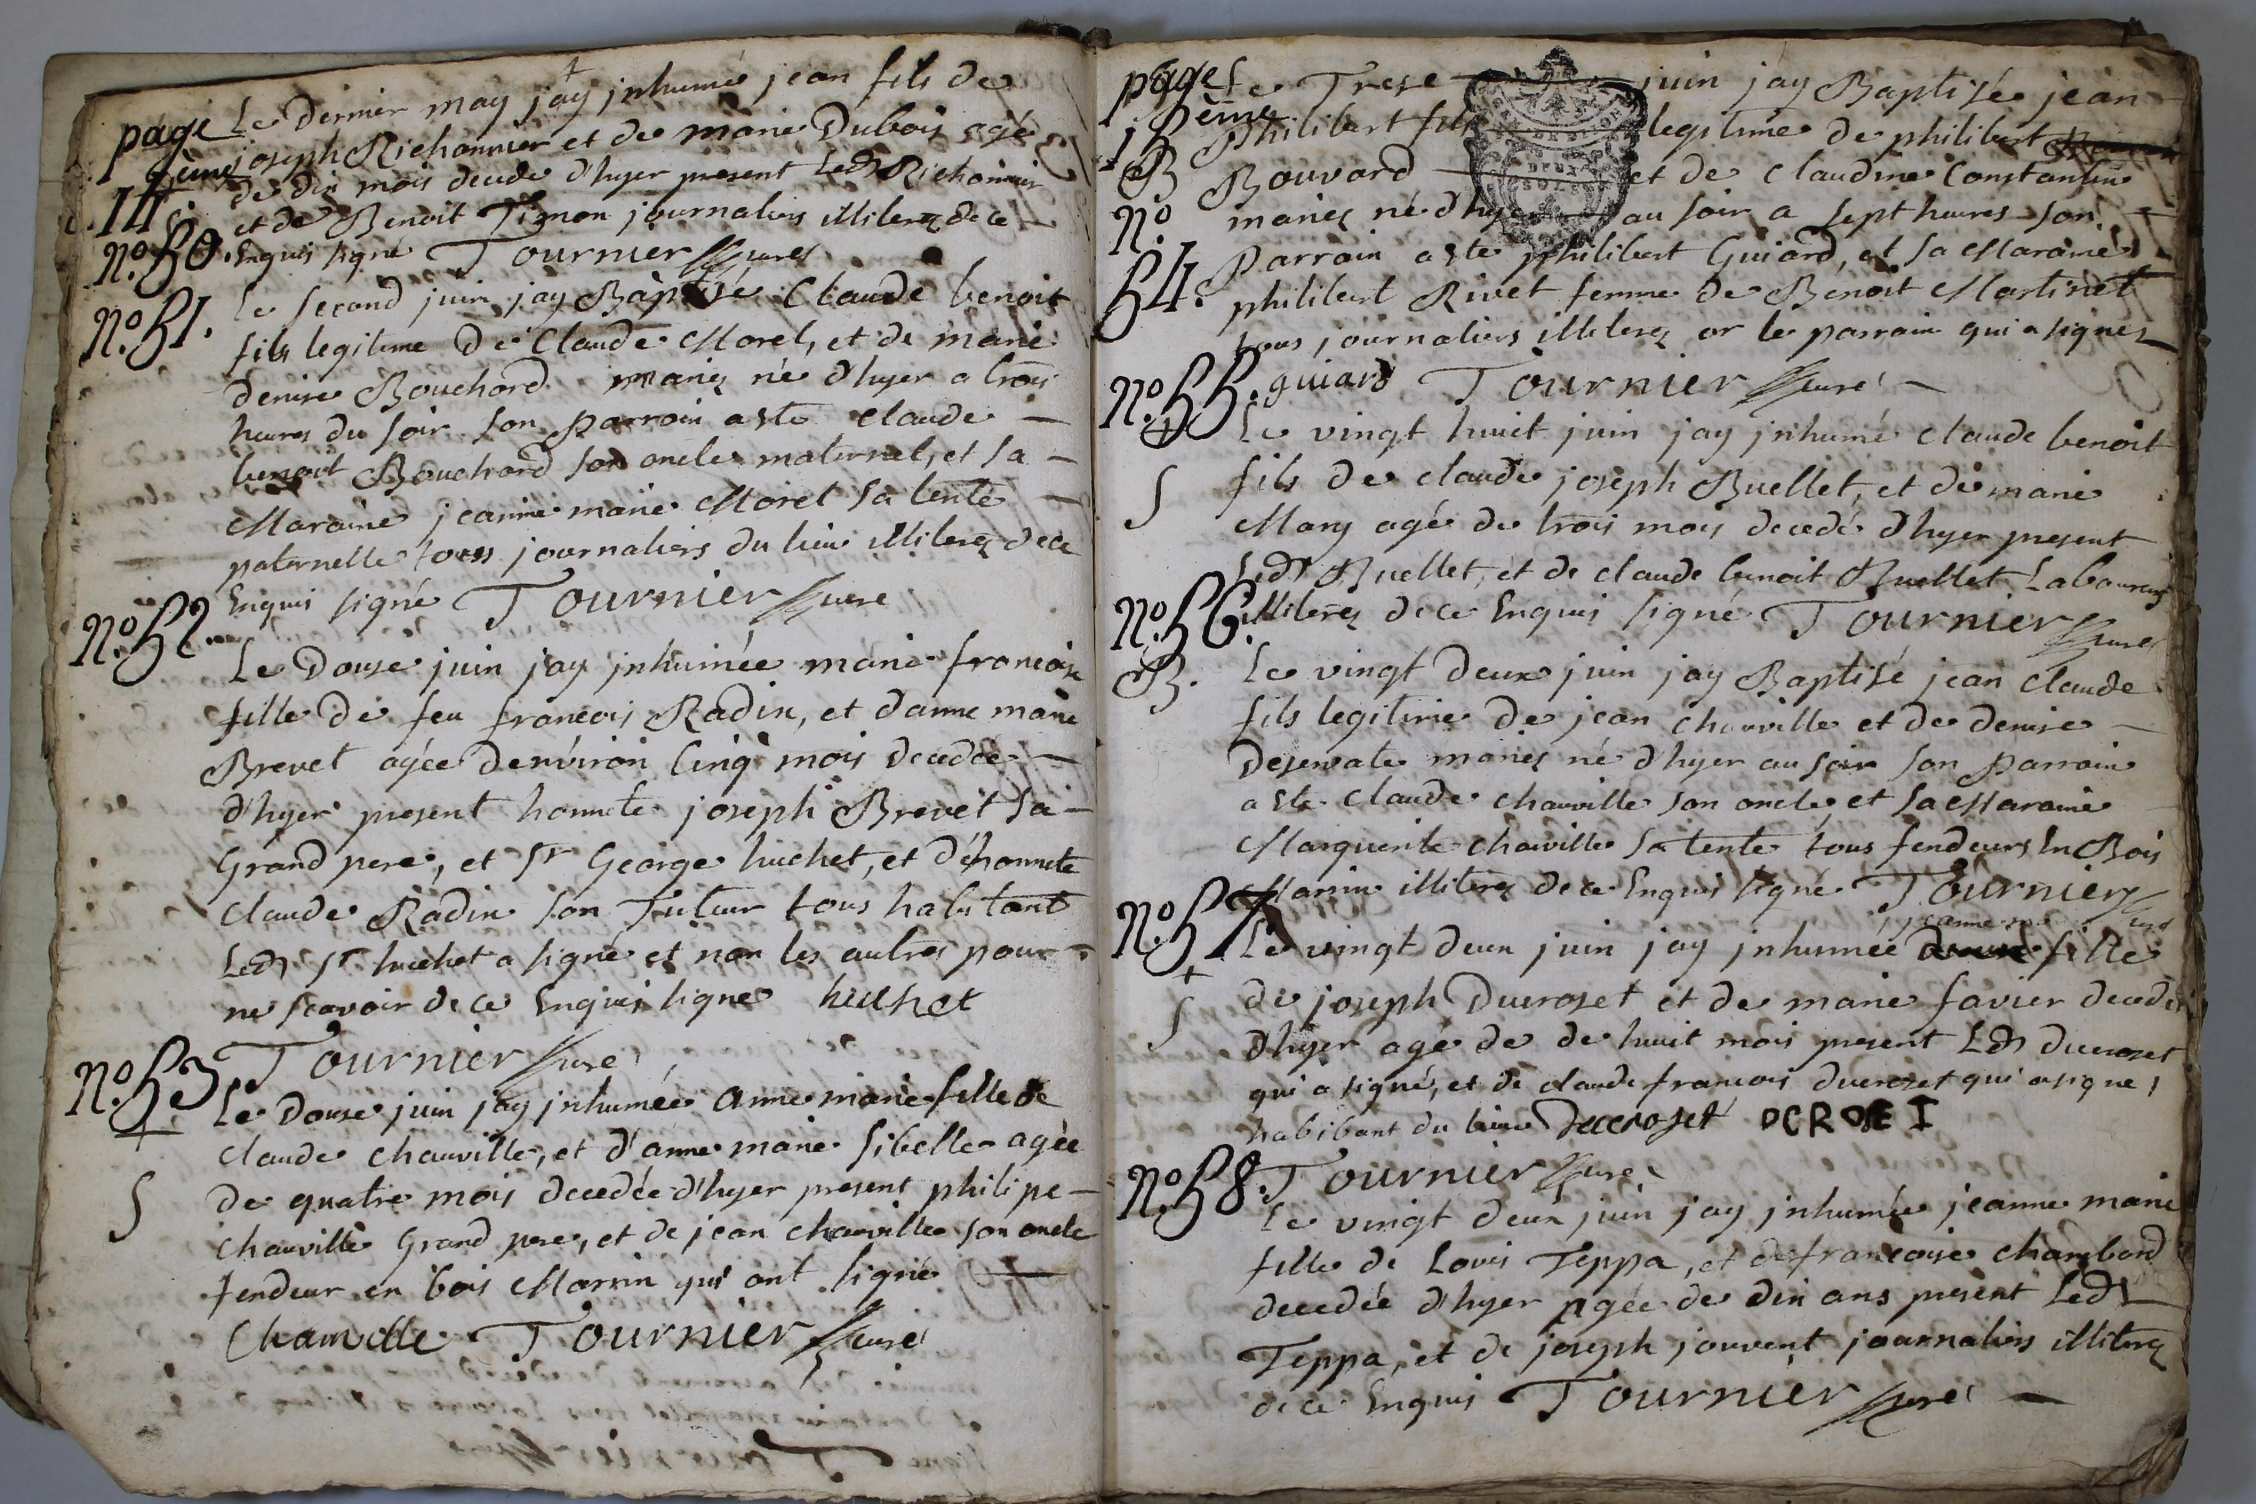 page
14
ème
N.o 50.
Le Dernier may jay jnhumé jean fils de
joseph Richonnier et de marie Dubois agé
de dix mois decede d'hyer present Led Richonnier
et de Benoit Tignon journaliers illiterez de ce
Enquis signé Tournier Curé
N.o 51.
Le second juin jay Baptisé Claude benoit
fils legitime De Claude Morel, et de marie
denise Bouchard mariez né d'hyer a trois
heures du soir son parroin a ste claude
benoit Bouchard son oncle maternel, et sa
Maraine jeanne marie Morel sa tente
paternelle tous journaliers du lieu illiterez de ce
Enquis signé Tournier Curé
N.o 52.
Le Douse juin jay jnhumée marie francoise
fille de feu francois Radix, et d'anne marie
Brevet agée denviron Cinq mois decedée
d'hyer present honnete joseph Brevet sa
Grand pere, et Sr George huchet, et d'honnete
Claude Radix son Tuteur tous habitant
Led Sr huchet a signé et non les autres pour
ne scavoir de ce Enquis signé huchet
Tournier Curé
N.o 53.
Le Douse juin jay jnhumée anne marie fille de
claude chauville, et d'anne marie sibelle agée
de quatre mois decedée d'hyer present philipe
S
chauville Grand pere, et de jean chauville son oncle
fendeur en bois Marrin qui ont signé
Chauville Tournier Curé
page
15
ème
B
N.o
54.
Le Trese juin jay Baptisé jean
Philibert fils legitime de philibert
Bouvard et de claudine Constantin
mariez né d'hyer au soir a sept heures son
Parrain a ste philibert Guiard, et sa Maraine
philibert Rivet femme de Benoit Martinet
tous journaliers illiterez or le parrain qui a signez
guiard Tournier Curé
N.o 55.
Le vingt huit juin jay jnhumé claude benoit
fils de claude joseph Buellet, et de marie
S
Mary agé de trois mois decedé d'hyer present
Led Buellet, et de claude benoit Buellet Laboureurs
illiterez de ce Enquis signé Tournier Curé
N.o 56.
B.
Le vingt deux juin jay Baptisé jean claude
fils legitime de jean chauville et de denise
Deservate mariez né d'hyer au soir son parroin
a ste claude chauville son oncle, et sa Maraine
Marguerite chauville sa tente tous fendeurs En Bois
Marrin illiterez de ce Enquis signé Tournier Curé
N.o 57.
Le vingt deux juin jay jnhumée jeanne fille
de joseph Ducroset et de marie favier decedée
S
d'hyer agé de de huit mois present Led ducroset
qui a signé, et de claude francois ducroset qui a signé,
habibant du lieu Ducroset DCROSET
Tournier Curé
N.o 58.
Le vingt deux juin jay jnhumée jeanne marie
fille de Louis Teppa, et de francoise chambard
decedée d'hyer agée de dix ans present Led
Teppa, et de joseph jouvent journaliers illiterez
de ce Enquis Tournier Curé